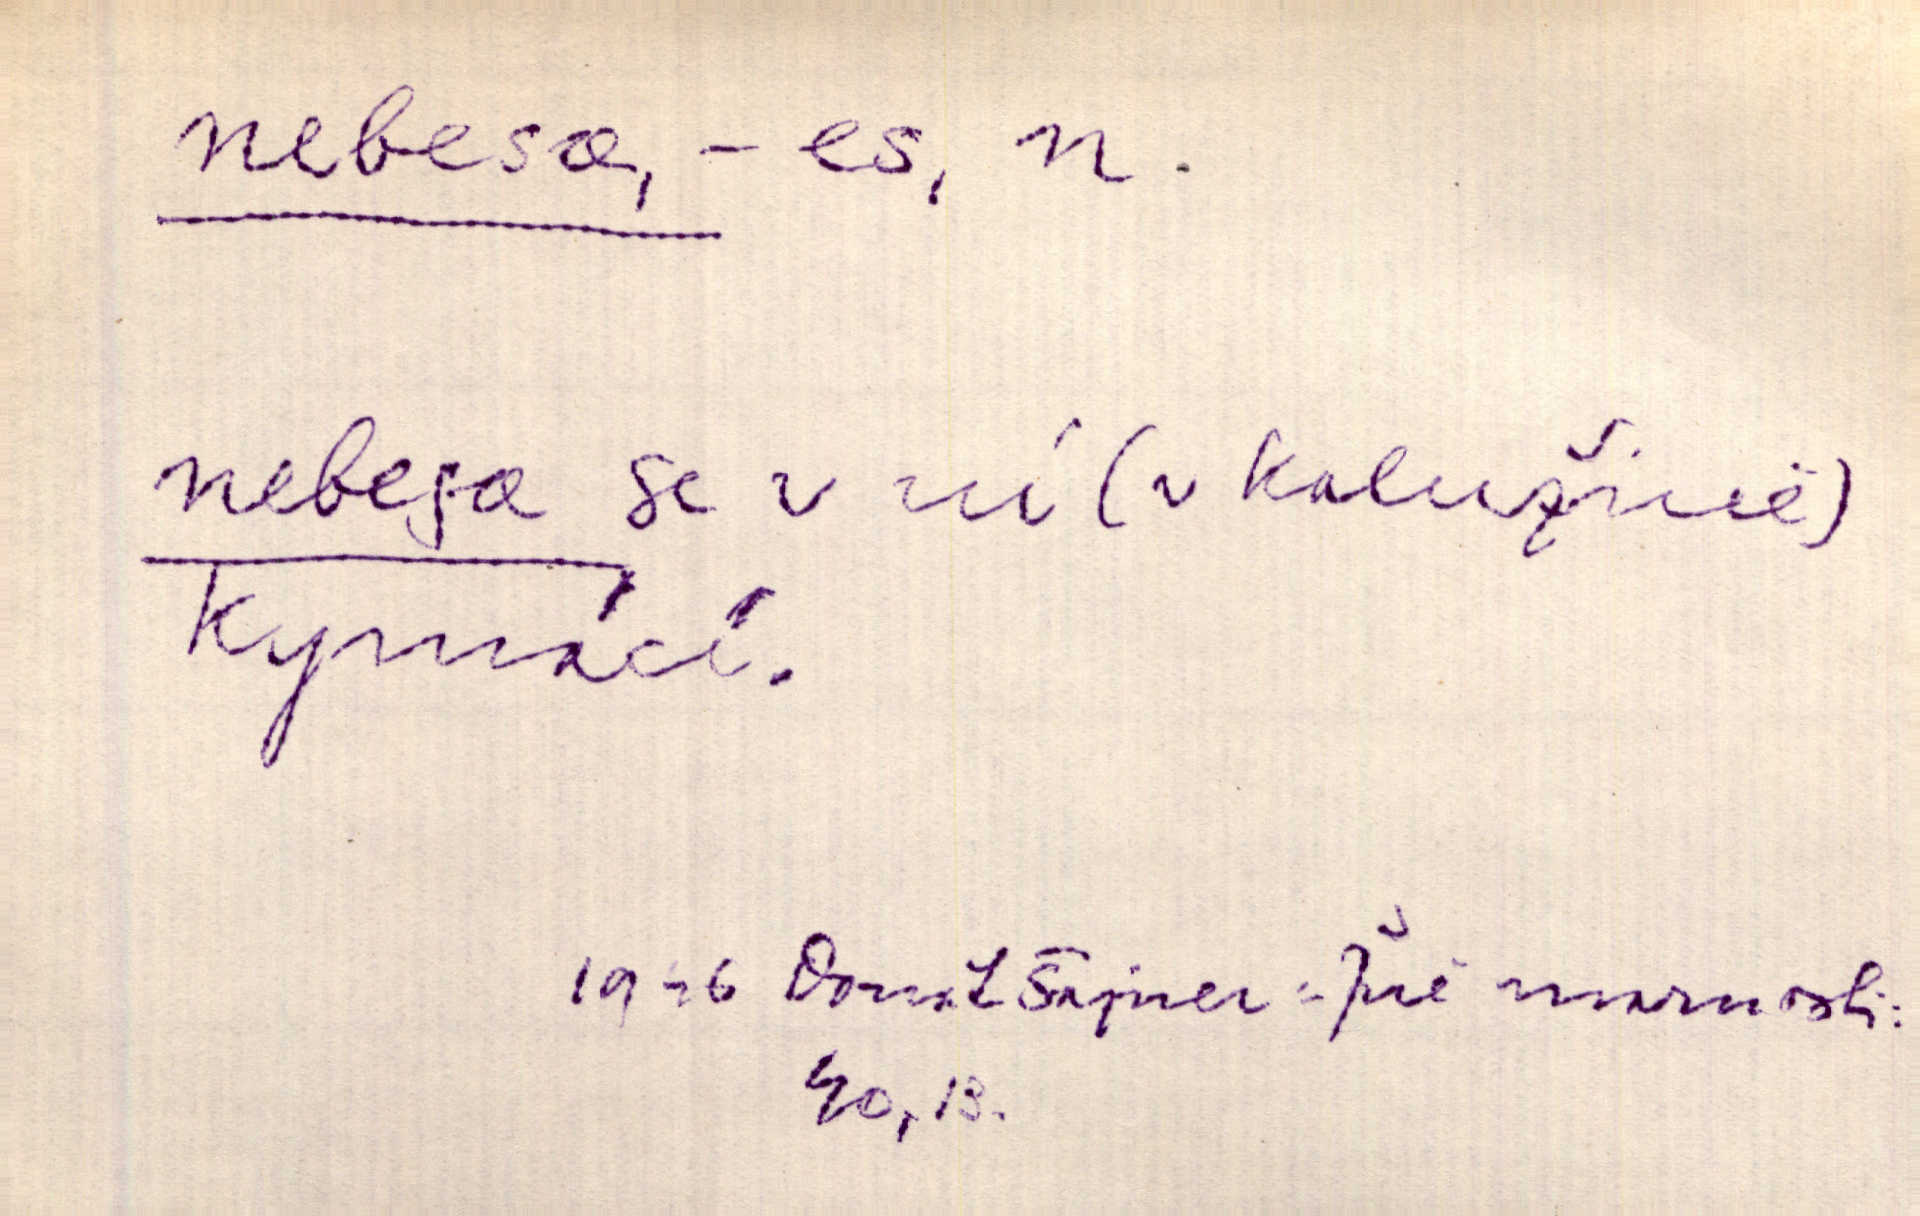 nebesa, -es, n.
nebesa se v ní (v kalužině)
kymácí.
1946 Donát Šajner: Pře marnosti:
40, 13.